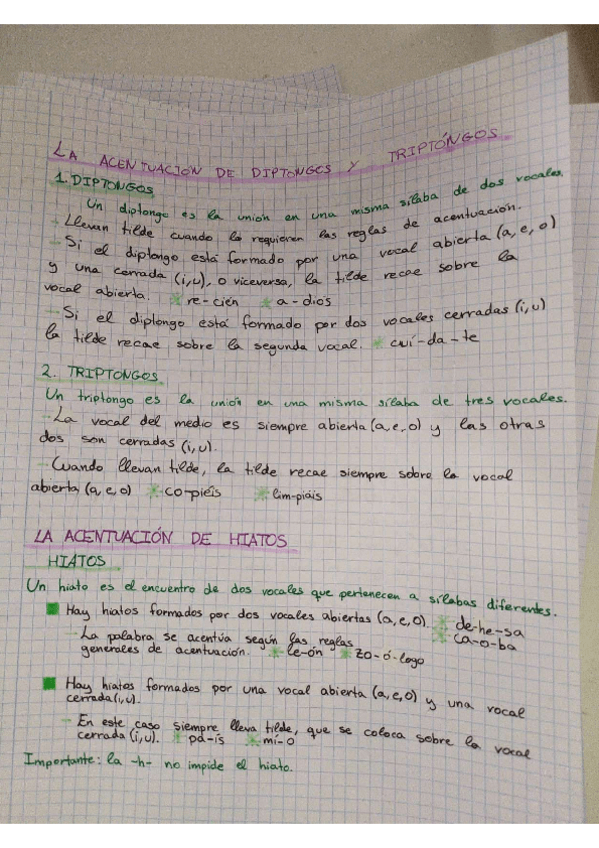 LA ACENTUACIÓN DE DIPTONGOS Y TRIPTÓNGOS
1. DIPTONGOS
Un diptongo es la unión en una misma sílaba de dos vocales.
- Llevan tilde cuando lo requieren las reglas de acentuación.
- Si el diptongo está formado por una vocal abierta (a, e, o)
y una cerrada (i,u), o viceversa, la tilde recae sobre la
vocal abierta. * re-cién * a-diós
- Si el diptongo está formado por dos vocales cerradas (i,u)
la tilde recae sobre la segunda vocal. * cuí-da-te
2. TRIPTONGOS
Un triptongo es la unión en una misma sílaba de tres vocales.
- La vocal del medio es siempre abierta (a,e,o) y las otras
dos son cerradas (i,u).
- Cuando llevan tilde, la tilde recae siempre sobre la vocal
abierta (a,e,o) * co-piéis * lim-piáis
LA ACENTUACIÓN DE HIATOS
HIATOS
Un hiato es el encuentro de dos vocales que pertenecen a sílabas diferentes.
Hay hiatos formados por dos vocales abiertas (a,e,o) * de-he-sa
* ca-o-ba
- La palabra se acentúa según las reglas
generales de acentuación. * le-ón * zo-ó-logo
Hay hiatos formados por una vocal abierta (a,e,o) y una vocal
cerrada (i,u).
- En este caso siempre lleva tilde, que se coloca sobre la vocal
cerrada (i,u). * pa-ís * mí-o
Importante: la -h- no impide el hiato.